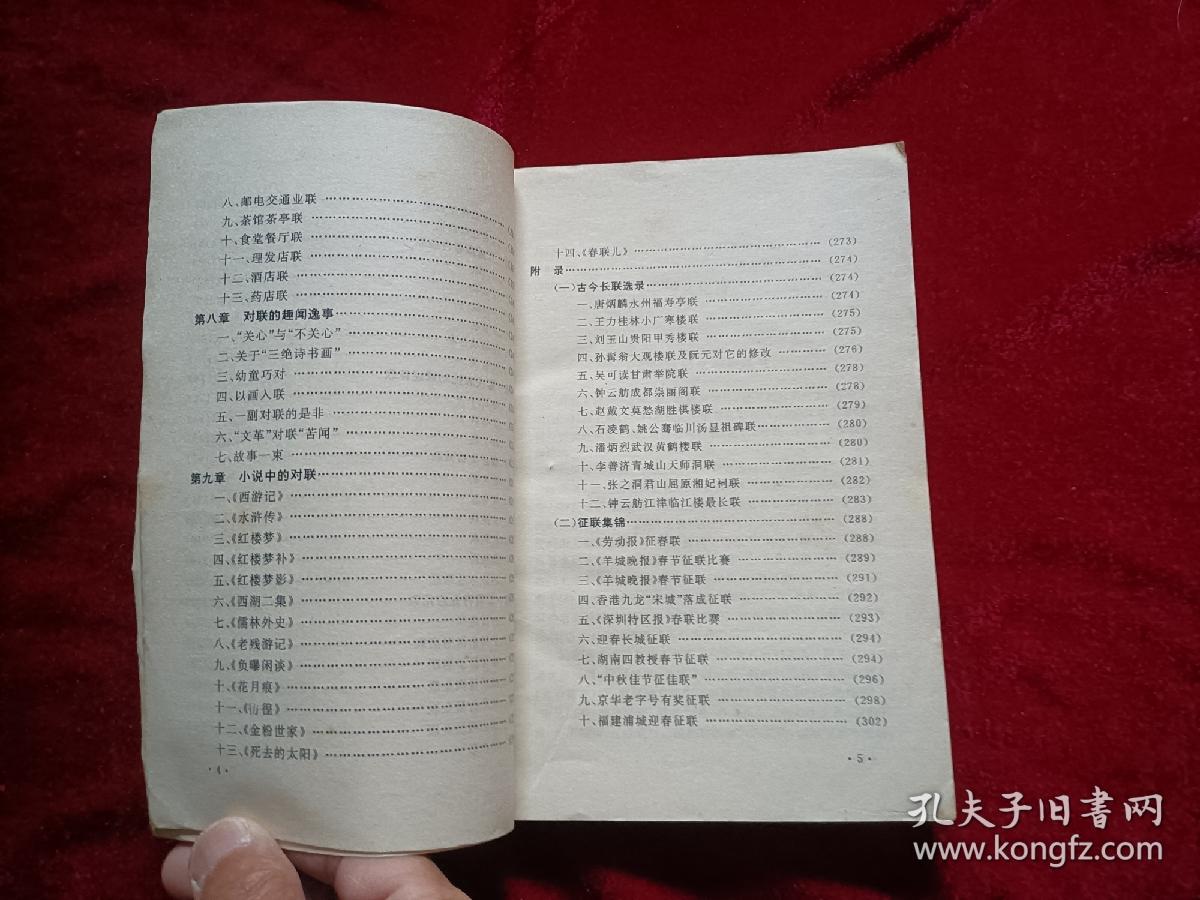 八、邮电交通业联
九、茶馆茶亭联
十、食堂餐厅联
十一、理发店联
十二、酒店联
十三、药店联
第八章 对联的趣闻逸事
一、“关心”与“不关心”
二、关于“三绝诗书画”
三、幼童巧对
四、以画入联
五、一副对联的是非
六、“文革”对联“苦闻”
七、故事一束
第九章 小说中的对联
一、《西游记》
二、《水浒传》
三、《红楼梦》
四、《红楼梦补》
五、《红楼梦影》
六、《西湖二集》
七、《儒林外史》
八、《老残游记》
九、《负曝闲谈》
十、《花月痕》
十一、《徬徨》
十二、《金粉世家》
十三、《死去的太阳》
·4·
十四、《春联儿》 (273)
附 录 (274)
(一)古今长联选录 (274)
一、唐炳麟永州福寿亭联 (274)
二、王力桂林小广寒楼联 (275)
三、刘玉山贵阳甲秀楼联 (275)
四、孙髯翁大观楼联及阮元对它的修改 (276)
五、吴可读甘肃举院联 (278)
六、钟云舫成都崇丽阁联 (278)
七、赵戴文莫愁湖胜棋楼联 (279)
八、石凌鹤、姚公骞临川汤显祖碑联 (280)
九、潘炳烈武汉黄鹤楼联 (280)
十、李善济青城山天师洞联 (281)
十一、张之洞君山屈原湘妃祠联 (282)
十二、钟云舫江津临江楼最长联 (283)
(二)征联集锦 (288)
一、《劳动报》征春联 (288)
二、《羊城晚报》春节征联比赛 (289)
三、《羊城晚报》春节征联 (291)
四、香港九龙“宋城”落成征联 (292)
五、《深圳特区报》春联比赛 (293)
六、迎春长城征联 (294)
七、湖南四教授春节征联 (294)
八、“中秋佳节征佳联” (296)
九、京华老字号有奖征联 (298)
十、福建浦城迎春征联 (302)
·5·
孔夫子旧书网
www.kongfz.com